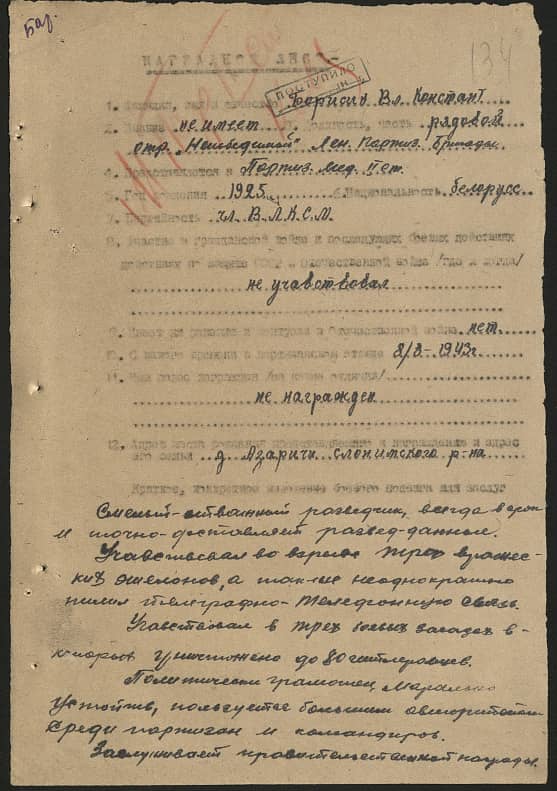 Бар.
134
НАГРАДНОЙ ЛИСТ
ПОСТУПИЛО
1. Фамилия, имя и отчество Борисик Вл. Констант
2. Звание не имеет 3. Должность, часть рядовой
отр. "Непобедимый" Лен. Партиз. Бригады
4. Представляется к Партиз. мед. II ст.
5. Год рождения 1925 6. Национальность белорусс
7. Партийность чл. ВЛКСМ
8. Участие в гражданской войне и последующих боевых действиях
действиях по защите СССР и отечественной войне /где и когда/
не учавствовал
9. Имеет ли ранения и контузии в Отечественной войне нет.
10. С какого времени в партизанском отряде 1943г
11. Чем ранее награжден /за какие отличия/
не награжден
12. Адрес места
его семьи д Азаричи слонимского р-на
Краткое, конкретное изложение боевого подвига или заслуг
Смелый разведчик, всегда в срок
и точно доставляет развед-данные.
Учавствовал во взрыве трех вражес-
ких эшелонов, а так-же неоднократно
пилил телеграфно-телефонную связь.
Учавствовал в трех боевых засадах в-
которых уничтожено до 80 гитлеровцев.
Политически грамотен, Морально
устойчив, пользуется большим авторитетом
среди партизан и командиров.
Заслуживает правительственной награды.